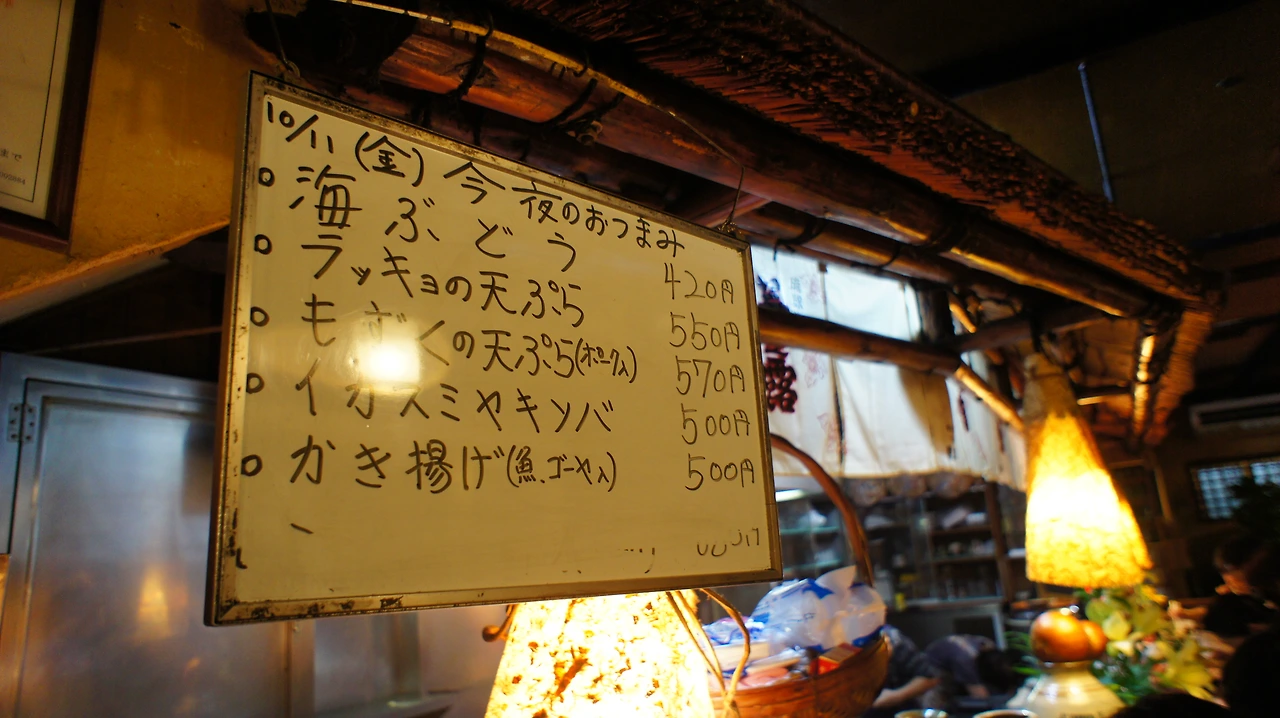 10/11 (金) 今夜のおつまみ
o 海ぶどう 420円
o ラッキョの天ぷら 550円
o もずくの天ぷら(ポーク入) 570円
o イカスミヤキソバ 500円
o かき揚げ(魚、ゴーヤ入) 500円
まで